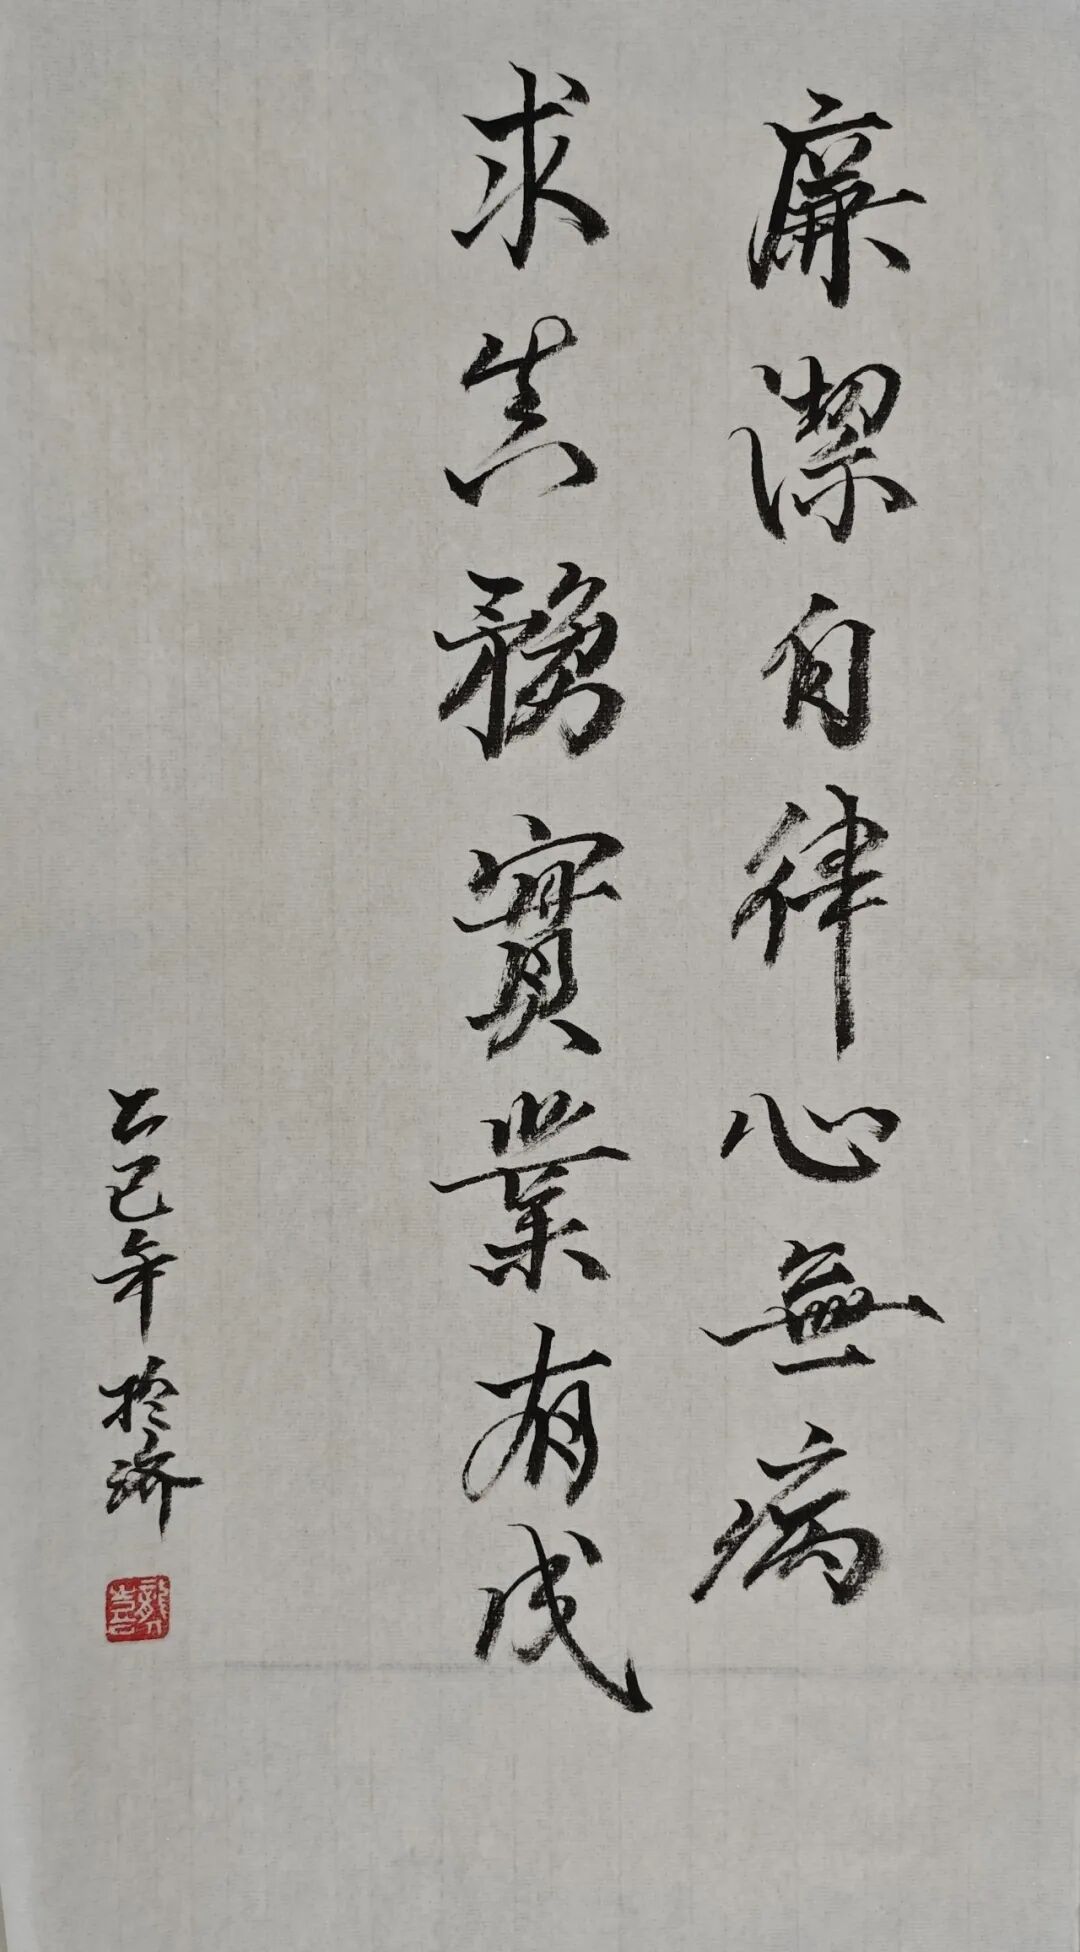 廉潔自律心無病
求真務實業有成
乙巳年於濟